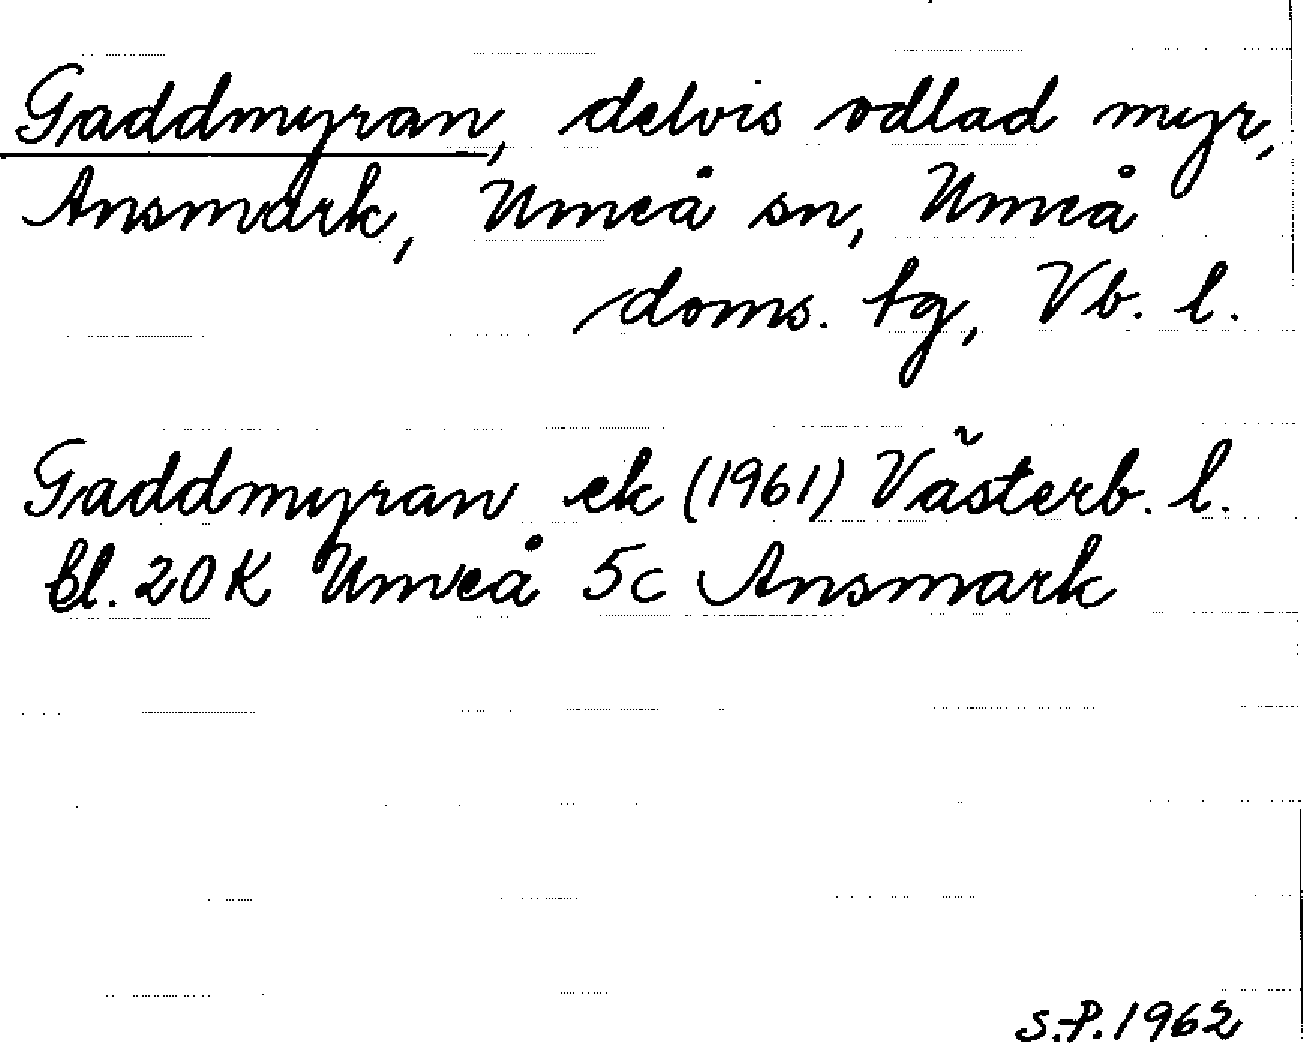 Gaddmyran, delvis odlad myr,
Ansmark, Umeå sn, Umeå
doms. tg, Vb. l.
Gaddmyran ek (1961) Västerb. l.
bl. 20K Umeå 5c Ansmark
S.P. 1962